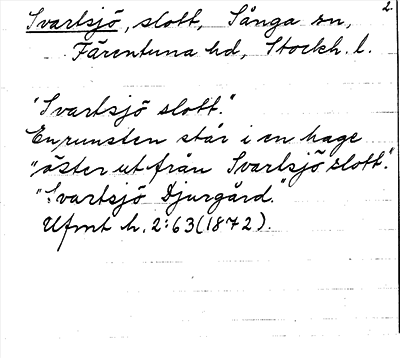 2.
Svartsjö, slott, Sånga sn,
Färentuna hd, Stockh. l.
"Svartsjö slott."
En runsten står i en hage
"öster ut från Svartsjö slott".
"Svartsjö Djurgård."
Ufmt h. 2:63 (1872).